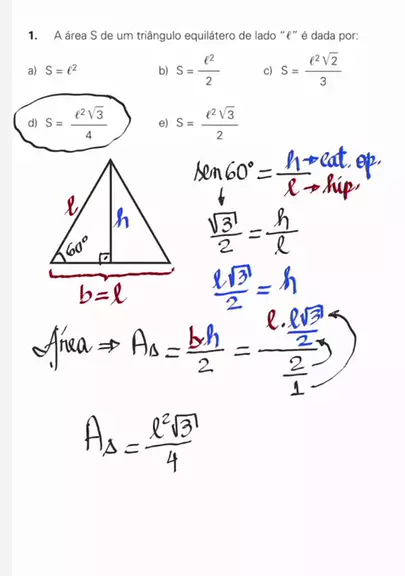 1. A área S de um triângulo equilátero de lado "ℓ" é dada por:
a) S = ℓ² b) S = ℓ²/2 c) S = ℓ²√2/3
d) S = ℓ²√3/4 e) S = ℓ²√3/2
sen60° = h→cat. op./ℓ→hip.
√3/2 = h/ℓ
ℓ√3/2 = h
ℓ h
60°
b=ℓ
Área ⇒ A△ = b.h/2 = ℓ.ℓ√3/2/2/1
A△ = ℓ²√3/4